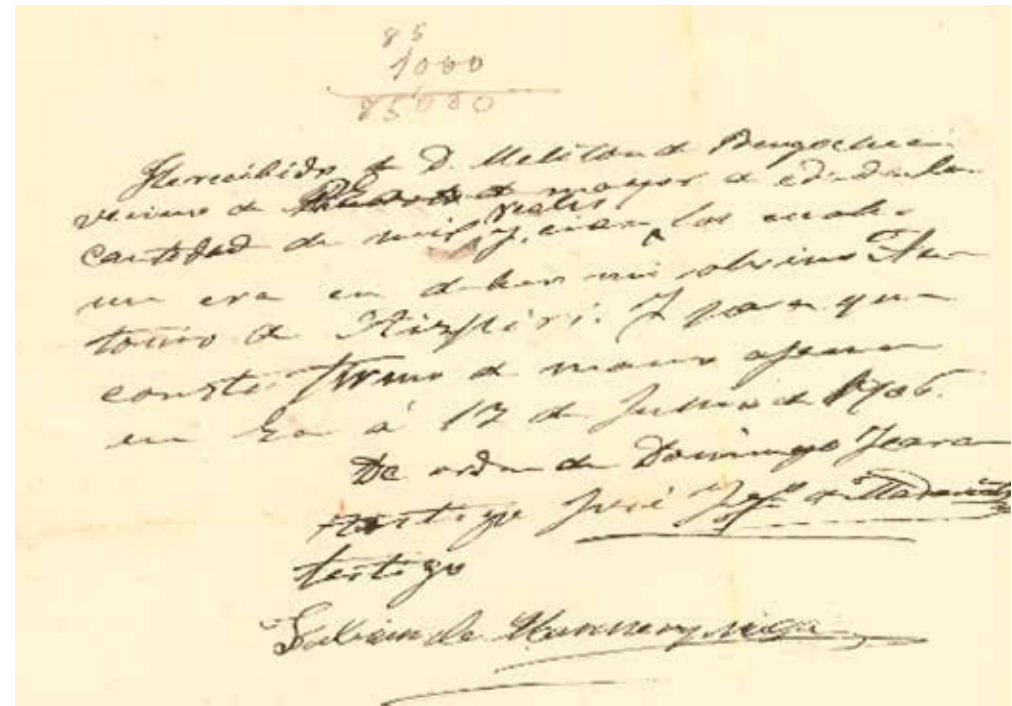 85
1000
85000
He recibido de D. Meliton de Bengochea
vecino de de mayor de edad la
cantidad de mil y cien reales, los cuales
me era en deber mi sobrino An
tonio de Aizpiri. Y para que
conste firmo de mano agena
en Ea á 17 de Junio de 1906.
De orden de Domingo
testigo José
testigo
Fabian de